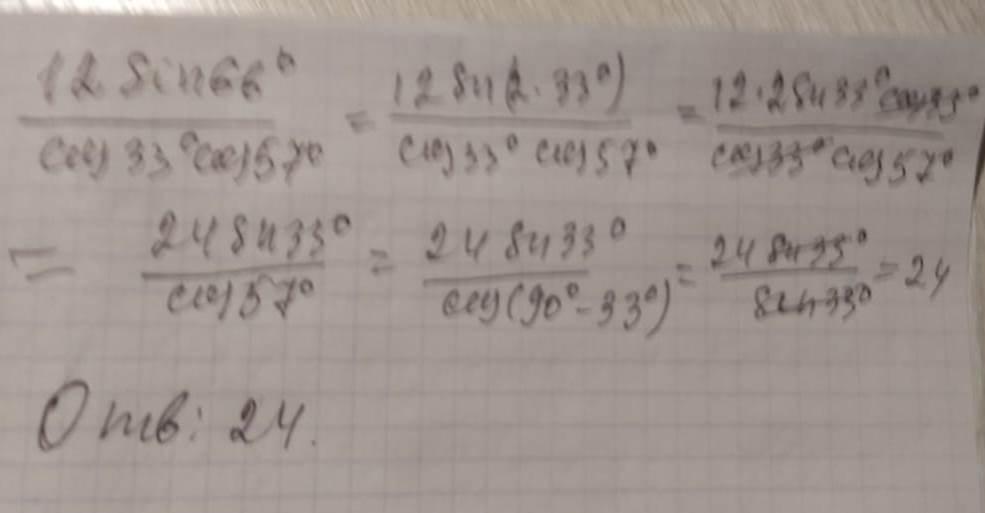 12 sin66° / cos33°cos57° = 12 sin(2·33°) / cos33° cos57° = 12·2sin33°cos33° / cos33° cos57°
= 24 sin33° / cos57° = 24 sin33° / cos(90°-33°) = 24 sin33° / sin33° = 24
Отв: 24.